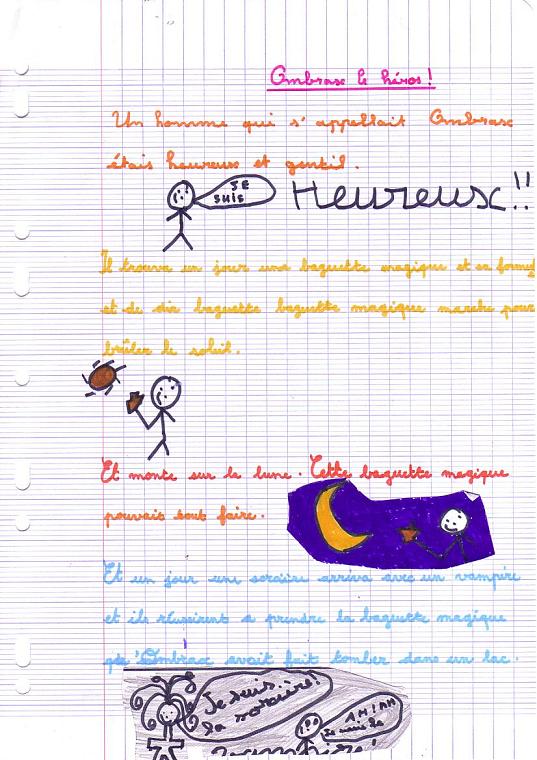 Ombrax le héros !
Un homme qui s'appellait Ombrax
étais heureux et gentil.
JE
SUIS
Heureux !!
Il trouva un jour une baguette magique et sa formu
et de dir baguette baguette magique marche pour
brûler le soleil.
Et monte sur la lune. Cette baguette magique
pouvait tout faire.
Et un jour une sorcière arriva avec un vampire
et ils réussirent a prendre la baguette magique
qu'Ombrax avait fait tomber dans un lac.
Je suis
la sorcière !
MIAM
Je suis le